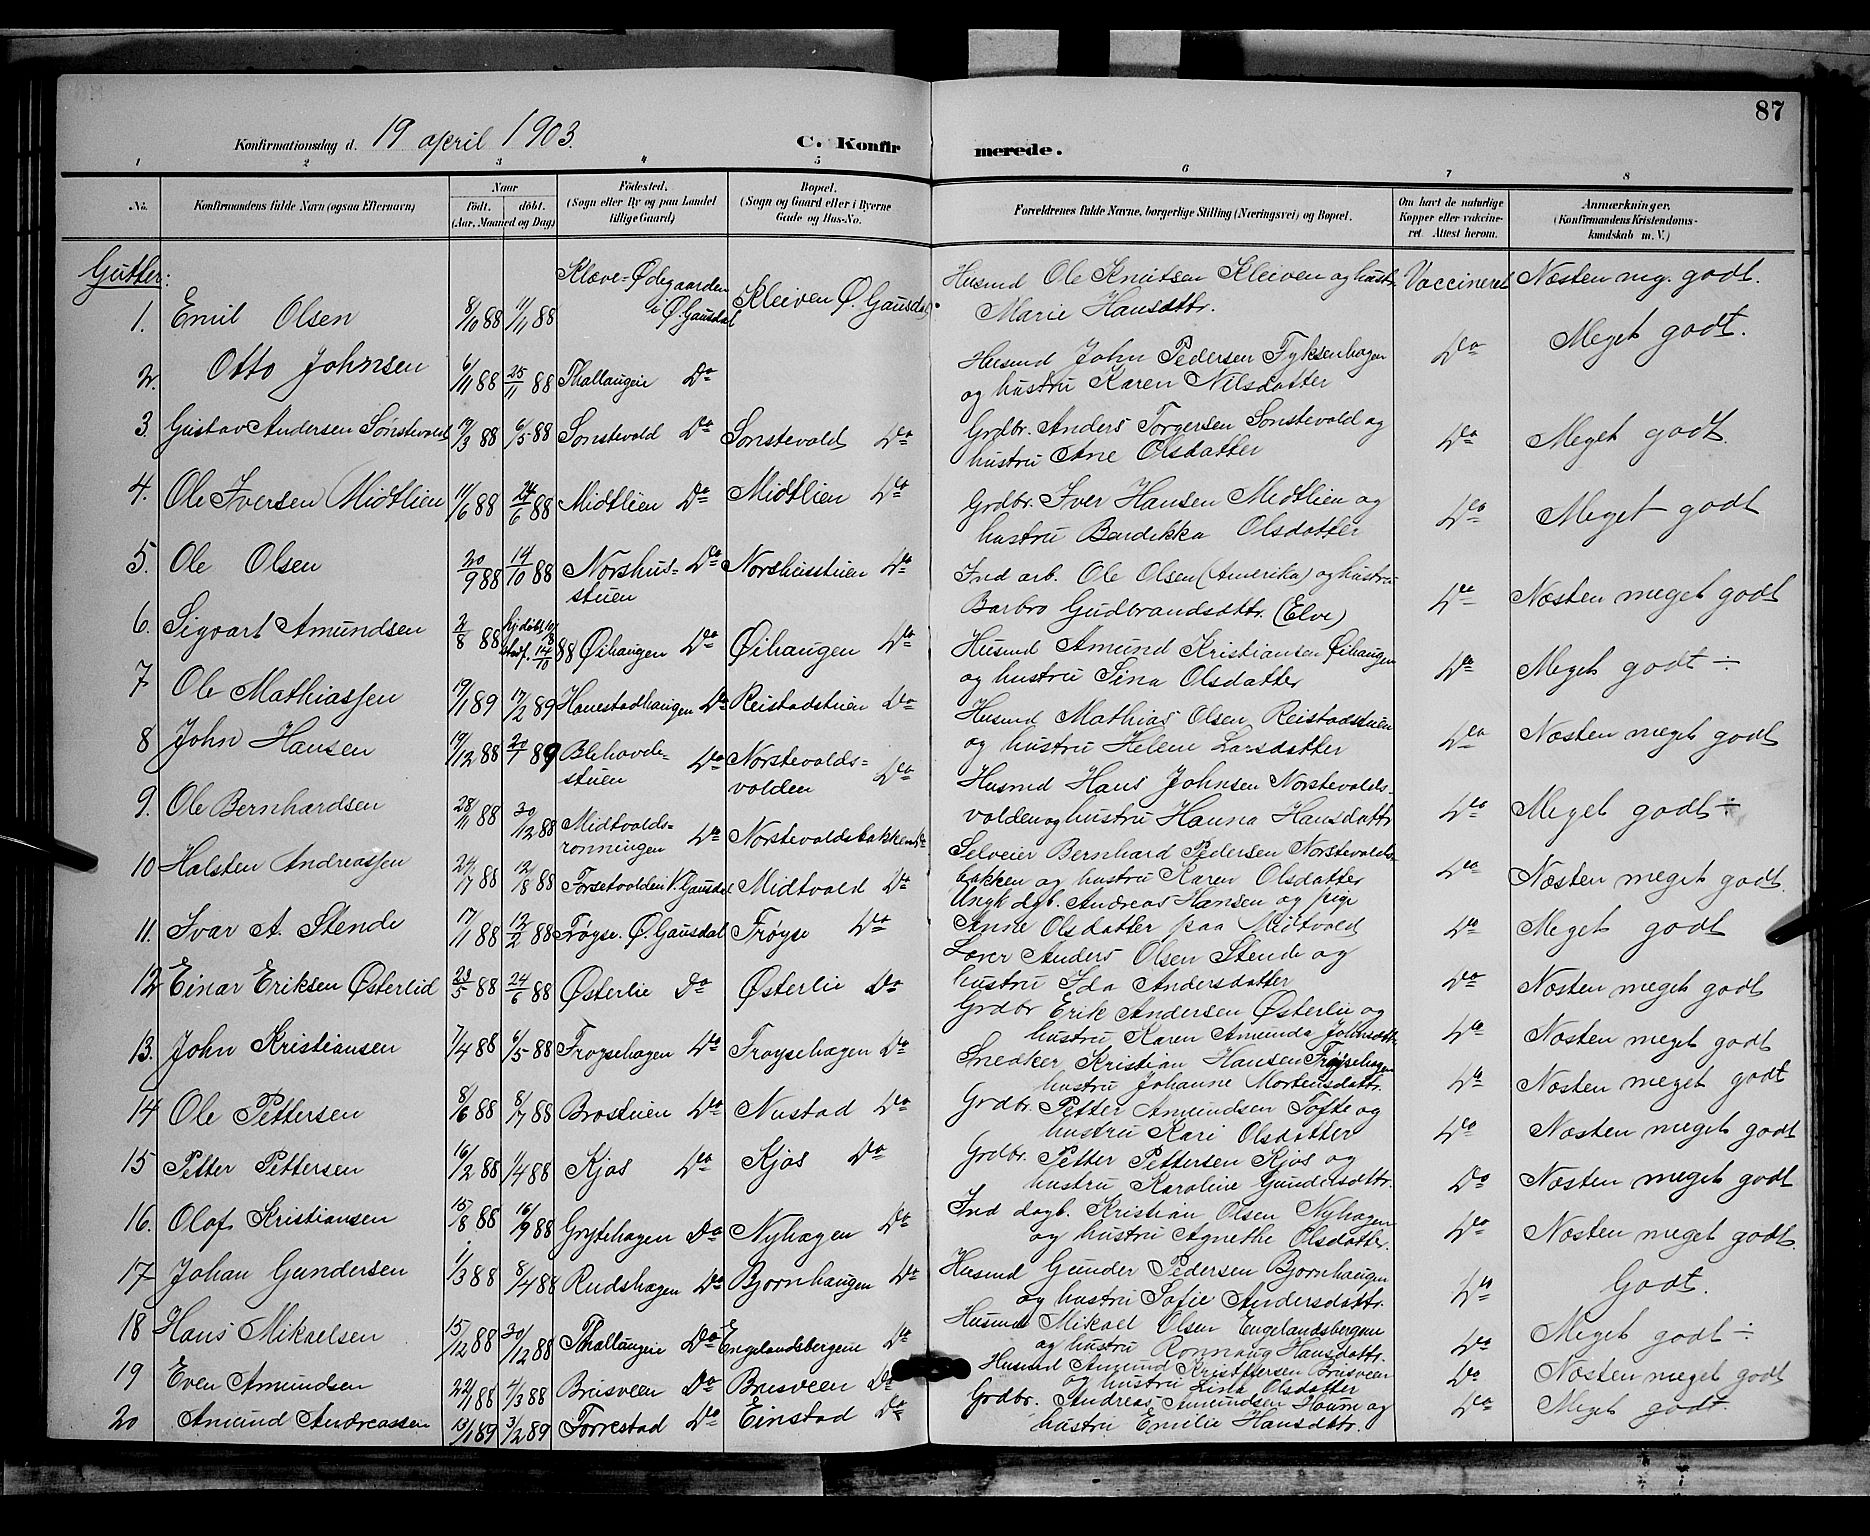 87
Konfirmationsdag d. 19 april 1903.
C. Konfirmerede.
1 2 3 4 5 6 7 8
No. Konfirmandens fulde Navn (ogsaa Efternavn) Naar født. døbt. (Aar, Maaned og Dag) Fødested. (Sogn eller By og paa Landet tillige Gaard) Bopæl. (Sogn og Gaard eller i Byerne Gade og Hus-No. Forældrenes fulde Navne, borgerlige Stilling (Næringsvei) og Bopæl. Om havt de naturlige Kopper eller vaccineret. Attest herom. Anmerkninger. (Konfirmandens Kristendomskundskab m. V.)
Gutter:
1. Emil Olsen 8/10 88 11/11 88 Klæve-Ødegaarden i Ø. Gausdal Kleiven Ø. Gausdal. Husmd Ole Knutsen Kleiven og hustr. Marie Hansdttr. Vaccineret Næsten meg. godt.
2. Otto Johnsen 6/11 88 25/11 88 Thallaugen Do Husmd John Pedersen Fyksenhagen og hustru Karen Nilsdatter Do Meget godt.
3. Gustav Andersen Sønstevold 17/3 88 6/5 88 Sonstevold Do Sonstevold Do Grdbr. Anders Torgersen Sønstevold og hustru Ane Olsdatter Do Meget godt.
4. Ole Iversen Midtlien 11/6 88 24/6 88 Midtlien Do Midtlien Do Grdbr. Iver Hansen Midtlien og hustru Bardikka Olsdatter Do Meget godt
5. Ole Olsen 20/9 88 14/10 88 Norshus-stuen Do Norshusstuen Do Ind arb. Ole Olsen (Amerika) og hustru Barbro Gudbrandsdttr. (Elve) Do Næsten meget godt
6. Sigvart Amundsen 2/8 88 hjdøbt 88 Øihaugen Do Øihaugen Do Husmd Amund Kristiansen Øihaugen og hustru Sina Olsdatter Do Meget godt ÷
7 Ole Mathiassen 19/1 89 17/2 89 Hanestadhaugen Do Reistadstuen Do Husmd Mathias Olsen Reistadstuen og hustru Helene Larsdatter Do Næsten meget godt
8 John Hansen 19/12 88 89 Blehovde-stuen Do Norstevolds-volden Do Husmd Hans Johnsen Norstevolds-volden og hustru Hanna Hansdattr Do Meget godt ÷
9. Ole Bernhardsen 28/11 88 30/12 88 Midtvolds-rønningen Do Norstevoldsbakken Do Selveier Bernhard Pedersen Norstevolds-bakken og hustru Karen Olsdatter Do Næsten meget godt.
10 Halsten Andreassen 24/7 88 12/8 88 Forsetvolden V. Gausdal Midtvold Do Ungk dgb. Andreas Hansen og pige Anne Olsdatter paa Midtvold Do Meget godt
11. Ivar A. Stende 17/1 88 12/2 88 Frøyse. Ø. Gausdal Frøyse Do Lærer Anders Olsen Stende og hustru Ida Andersdatter Do Næsten meget godt
12 Einar Eriksen Østerlid 23/5 88 24/6 88 Østerlie Do Østerlie Do Grdbr Erik Andersen Østerlie og hustru Karen Amunda Johnsdttr. Do Næsten meget godt
13. John Kristiansen 7/4 88 6/5 88 Frøysehagen Do Frøysehagen Do Snedker Kristian Hansen Frøysehagen hustru Johanne Mortensdattr. Do Næsten meget godt
14 Ole Pettersen 8/6 88 8/7 88 Brostuen Do Nustad Do Grdbr. Petter Amundsen Tofte og hustru Kari Olsdatter Do Næsten meget godt
15 Petter Pettersen 16/2 88 1/4 88 Kjos Do Kjos Do Grdbr. Petter Pettersen Kjos og hustru Karoline Gundersdttr. Do Næsten meget godt
16. Olaf Kristiansen 15/8 88 16/9 88 Grytehagen Do Nyhagen Do Ind dagb. Kristian Olsen Nyhagen og hustru Agnethe Olsdatter. Do Næsten meget godt.
17 Johan Gundersen 1/3 88 8/4 88 Rudshagen Do Bjørnhaugen Do Husmd Gunder Pedersen Bjørnhaugen og hustru Sofie Andersdattr. Do Godt.
18 Hans Mikaelsen 15/12 88 30/12 88 Thallaugen Do Engelandsbergene Do Husmd Mikael Olsen Engelandsbergene og hustru Rønnaug Hansdattr. Do Meget godt ÷
19 Even Amundsen 22/1 88 4/3 88 Brusveen Do Brusveen Do Husmd Amund Kristffersen Brusveen og hustru Olsdatter Do Næsten meget godt
20 Amund Andreassen 13/1 89 3/2 89 Forrestad Do Einstad Do Grdbr. Andreas Amundsen og hustru Emilie Hansdttr. Do Meget godt.